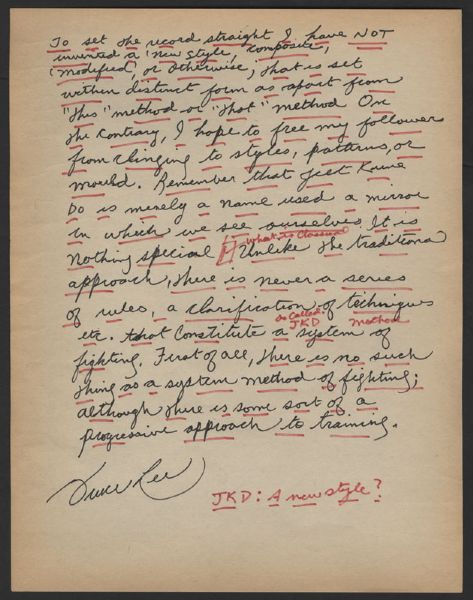 To set the record straight I have NOT
invented a "new style", composite,
"modified", or otherwise; that is set
within distinct form as apart from
"this" method or "that" method On
the contrary, I hope to free my follower
from clinging to styles, patterns, or
mould. Remember that Jeet Kune
Do is merely a name used a mirror
In which we see ourselves It is
what is classical
nothing special Unlike the traditional
approach, there is never a series
of rules, a clarification of techniques
so called: JKD method
etc. that constitute a system of
fighting. First of all, there is no such
thing as a system method of fighting;
although there is some sort of a
progressive approach to training.
Bruce Lee
JKD: A new style?